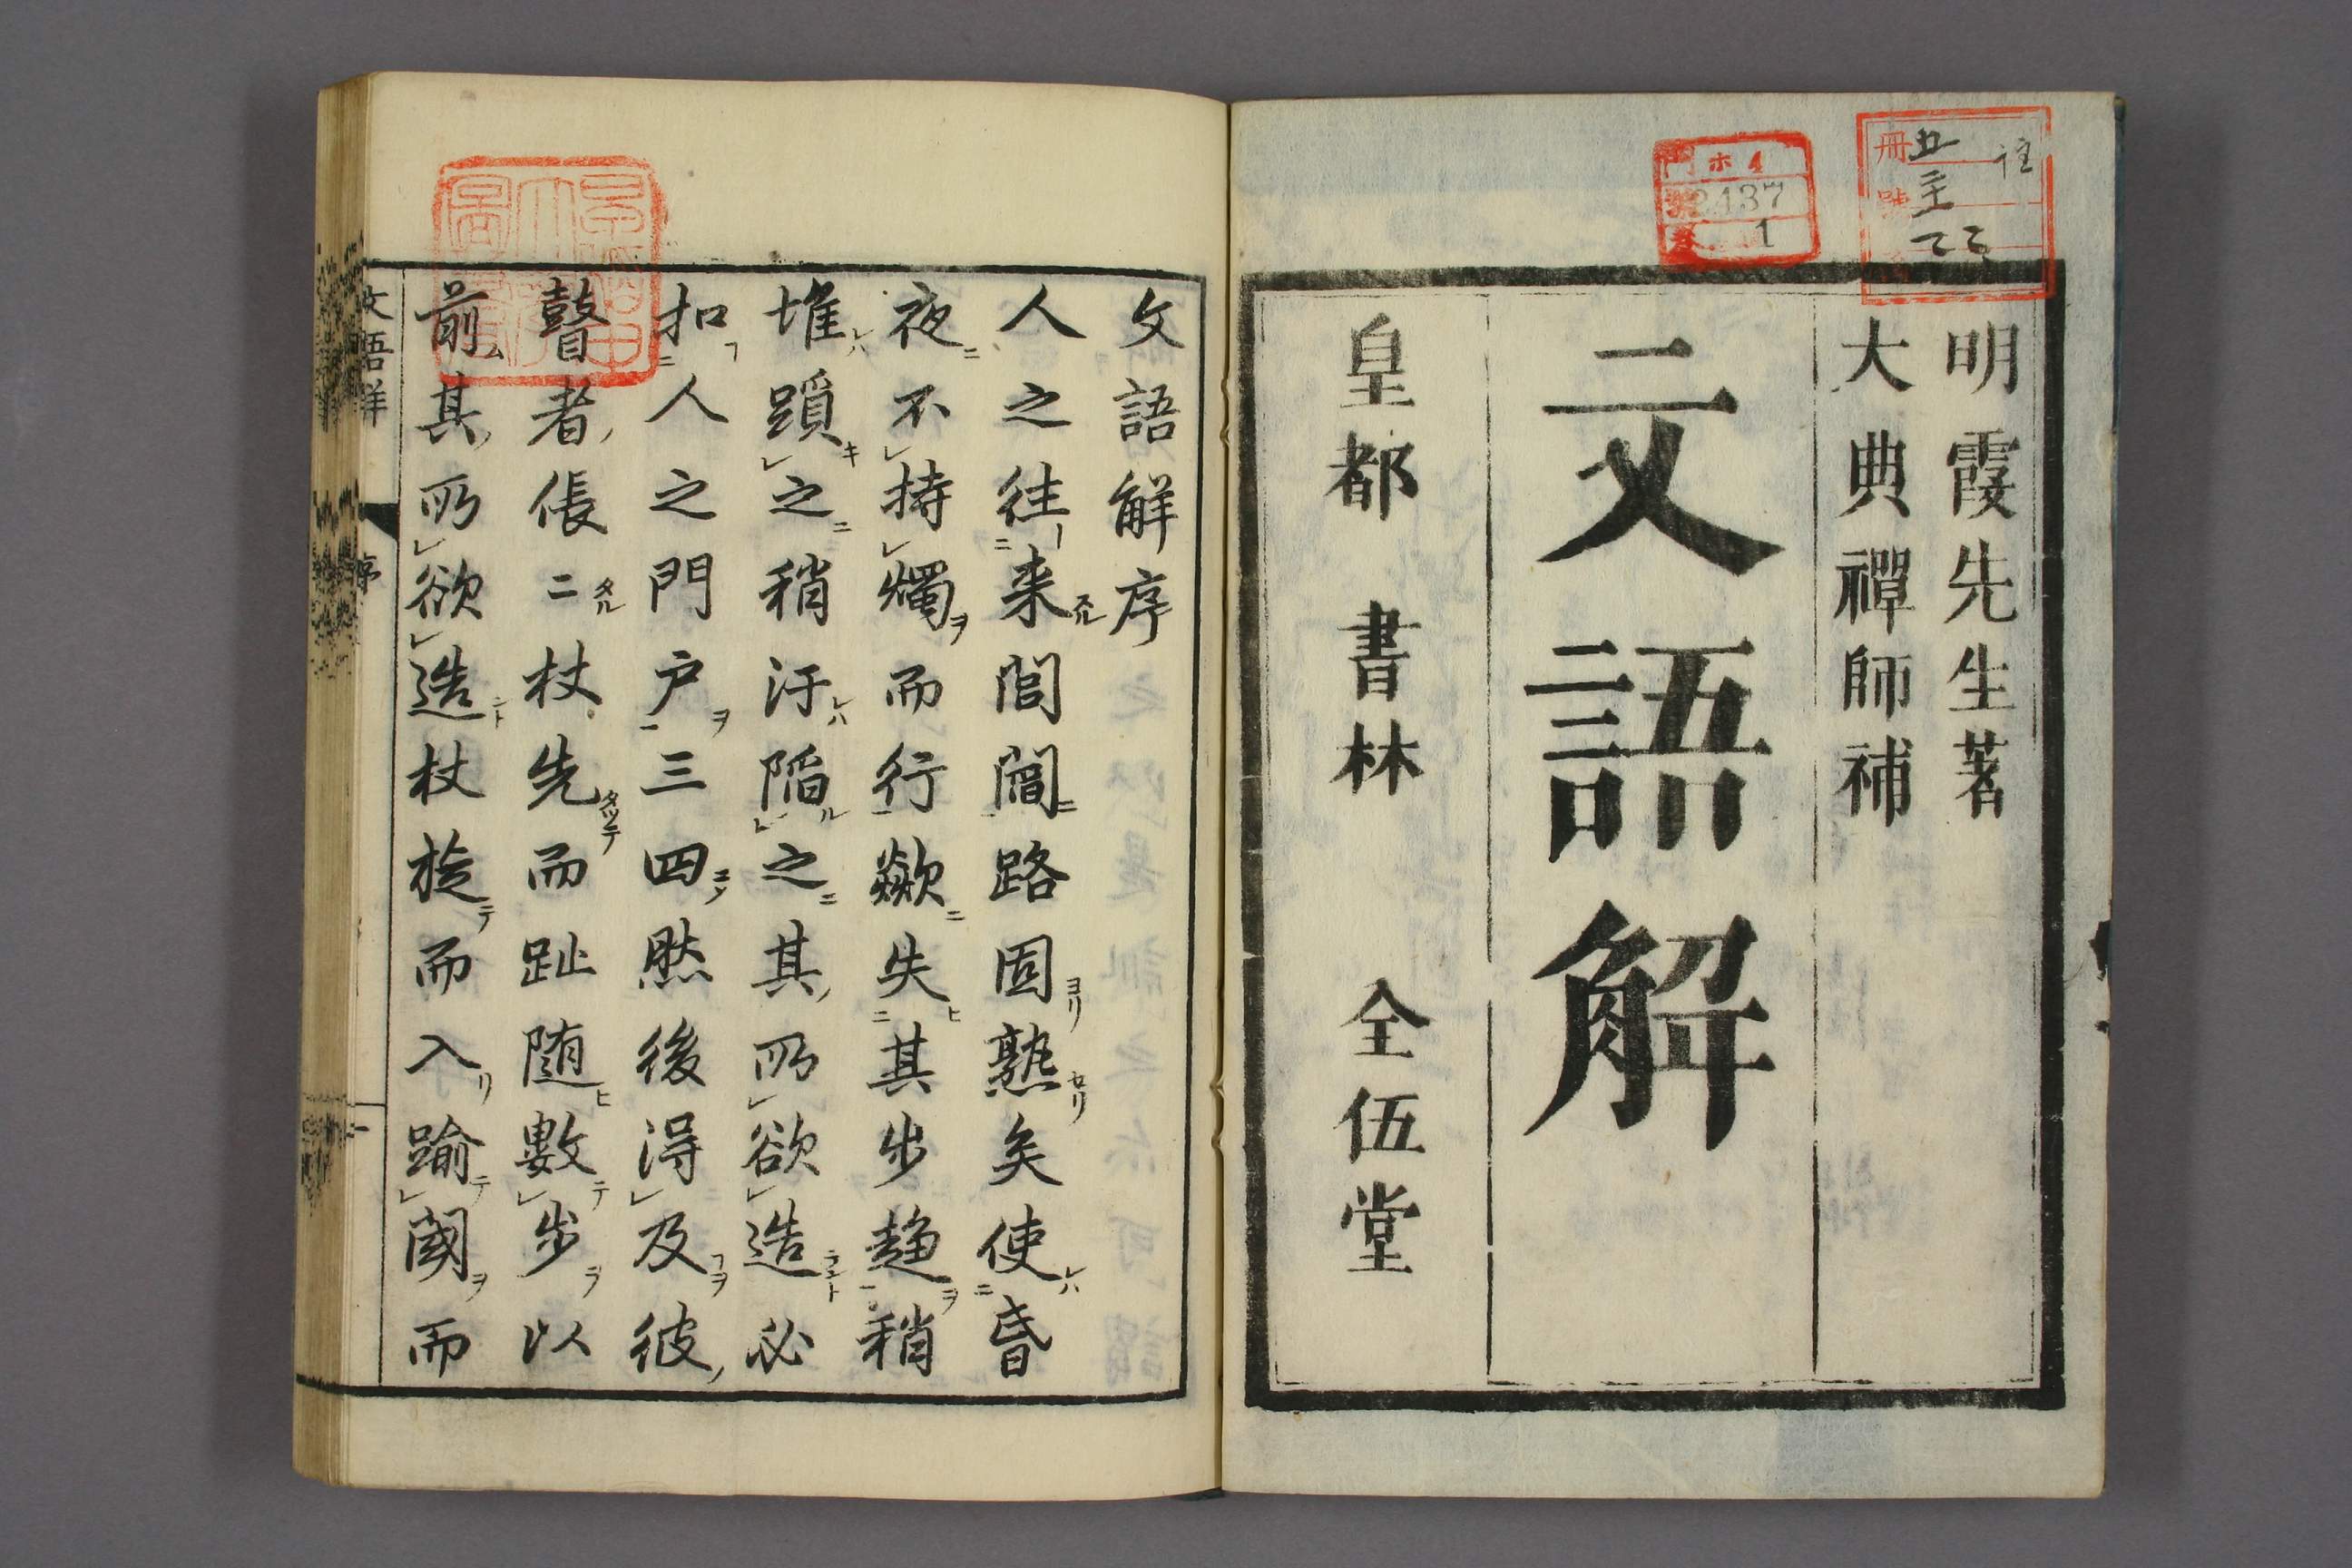 明霞先生著
大典禪師補
文語解
皇都 書林 全伍堂
門 ホ4
號 2437
巻 1
冊
號
文語解序
人之往来閭閻路固熟矣使昏
夜不持燭而行歘失其步趍稍
堆躓之稍汙陷之其所欲造必
扣人之門户三四然後得及彼
瞽者倀二杖先而趾随數步以
前其所欲造杖旋而入踰閾而
文語觧 序 一